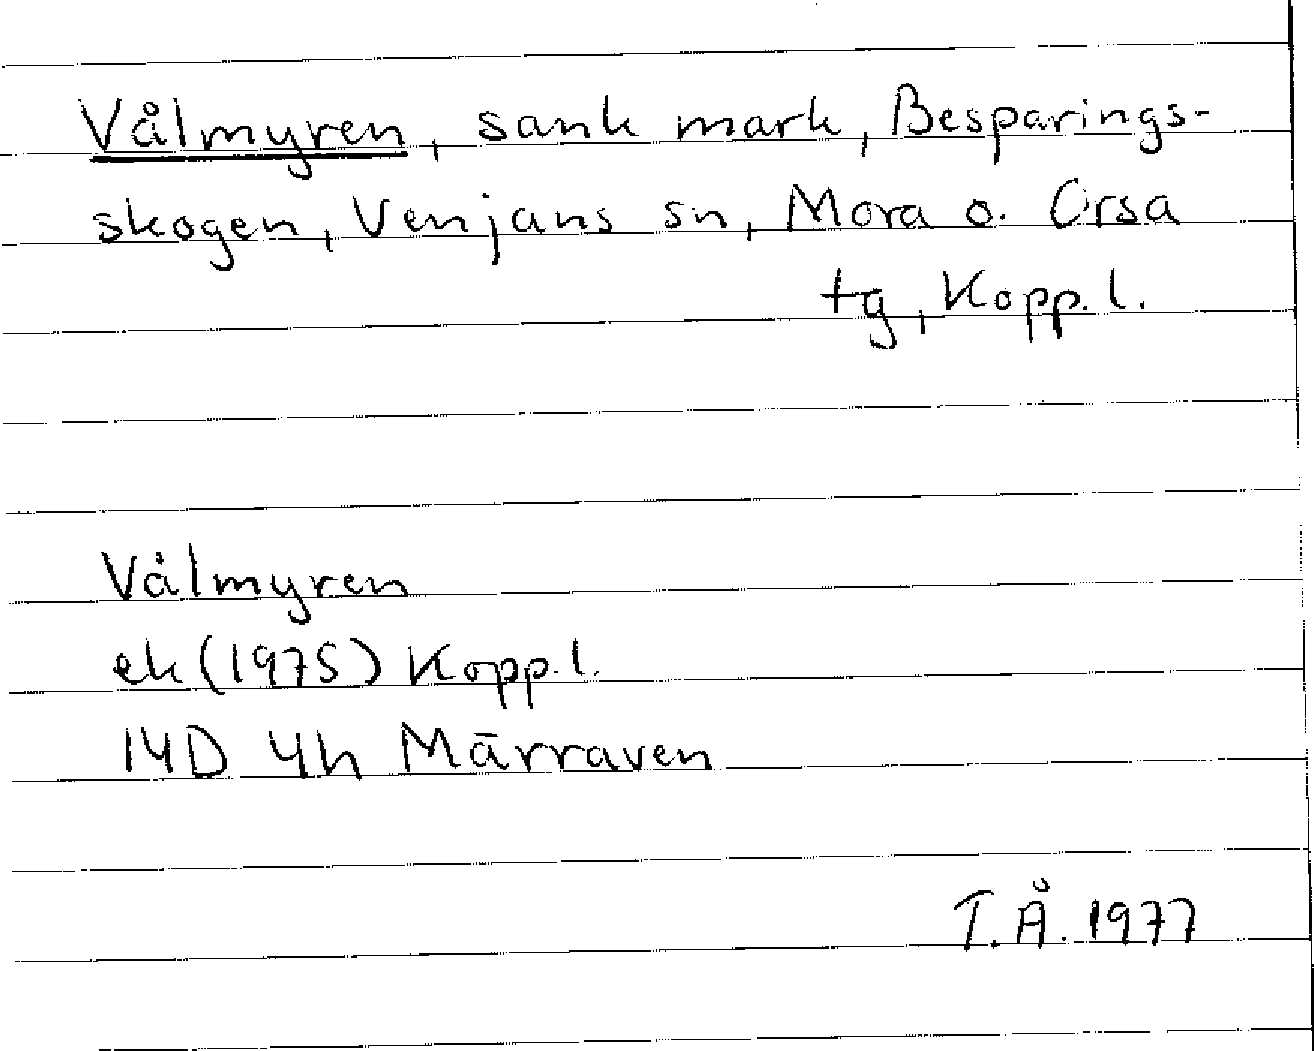 Vålmyren, sank mark, Besparings-
skogen, Venjans sn, Mora o. Orsa
tg, Kopp. l.
Vålmyren
ek (1975) Kopp. l.
14D 4h Märraven
T.Å. 1977